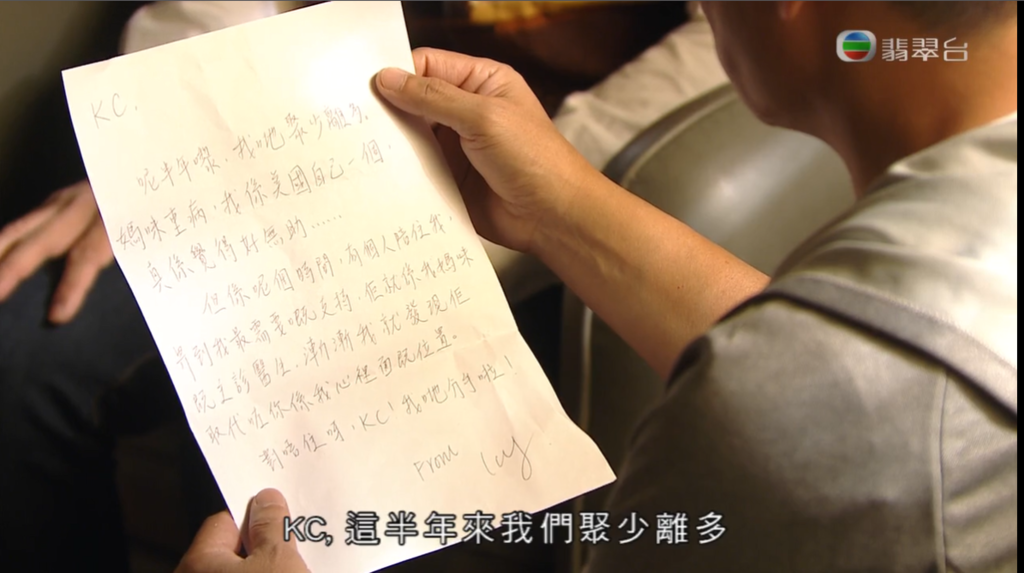 翡翠台
KC,
呢半年嚟,我哋聚少離多。
媽咪重病,我係美國自己一個,
真係覺得好無助……
但係呢個時間,有個人陪住我,
畀到我最需要嘅支持,佢就係我媽咪
既主診醫生,漸漸我就發現佢
取代咗你係我心裡面既位置。
對唔住呀,KC!我哋分手啦!
From
KC, 這半年來我們聚少離多